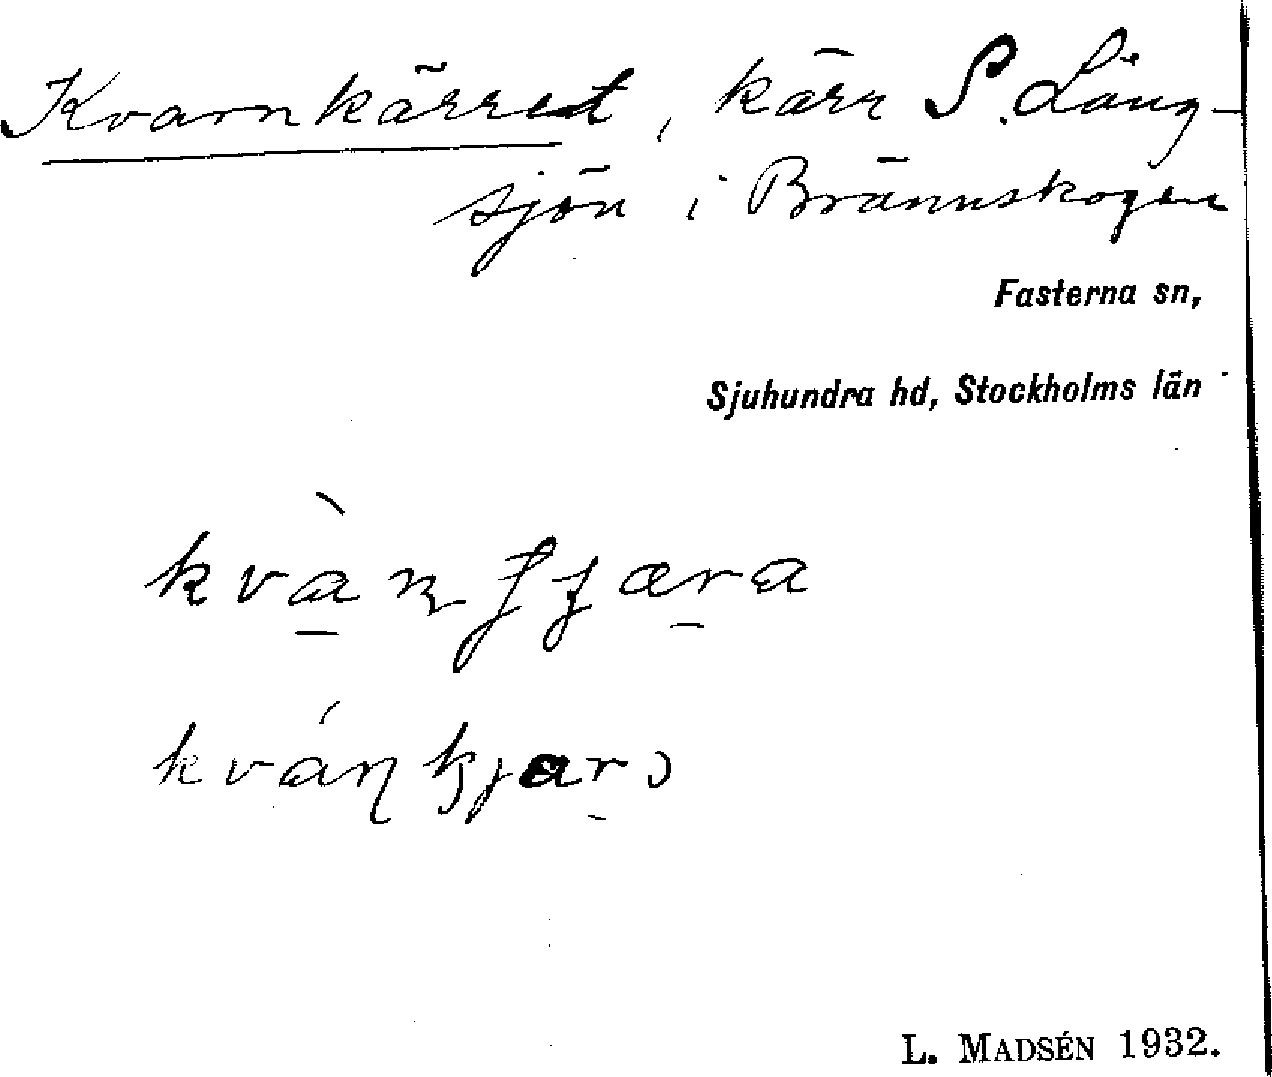 Kvarnkärret, kärr S. Lång-
sjön i Brännskogen
Fasterna sn,
Sjuhundra hd, Stockholms län
L. MADSÉN 1932.